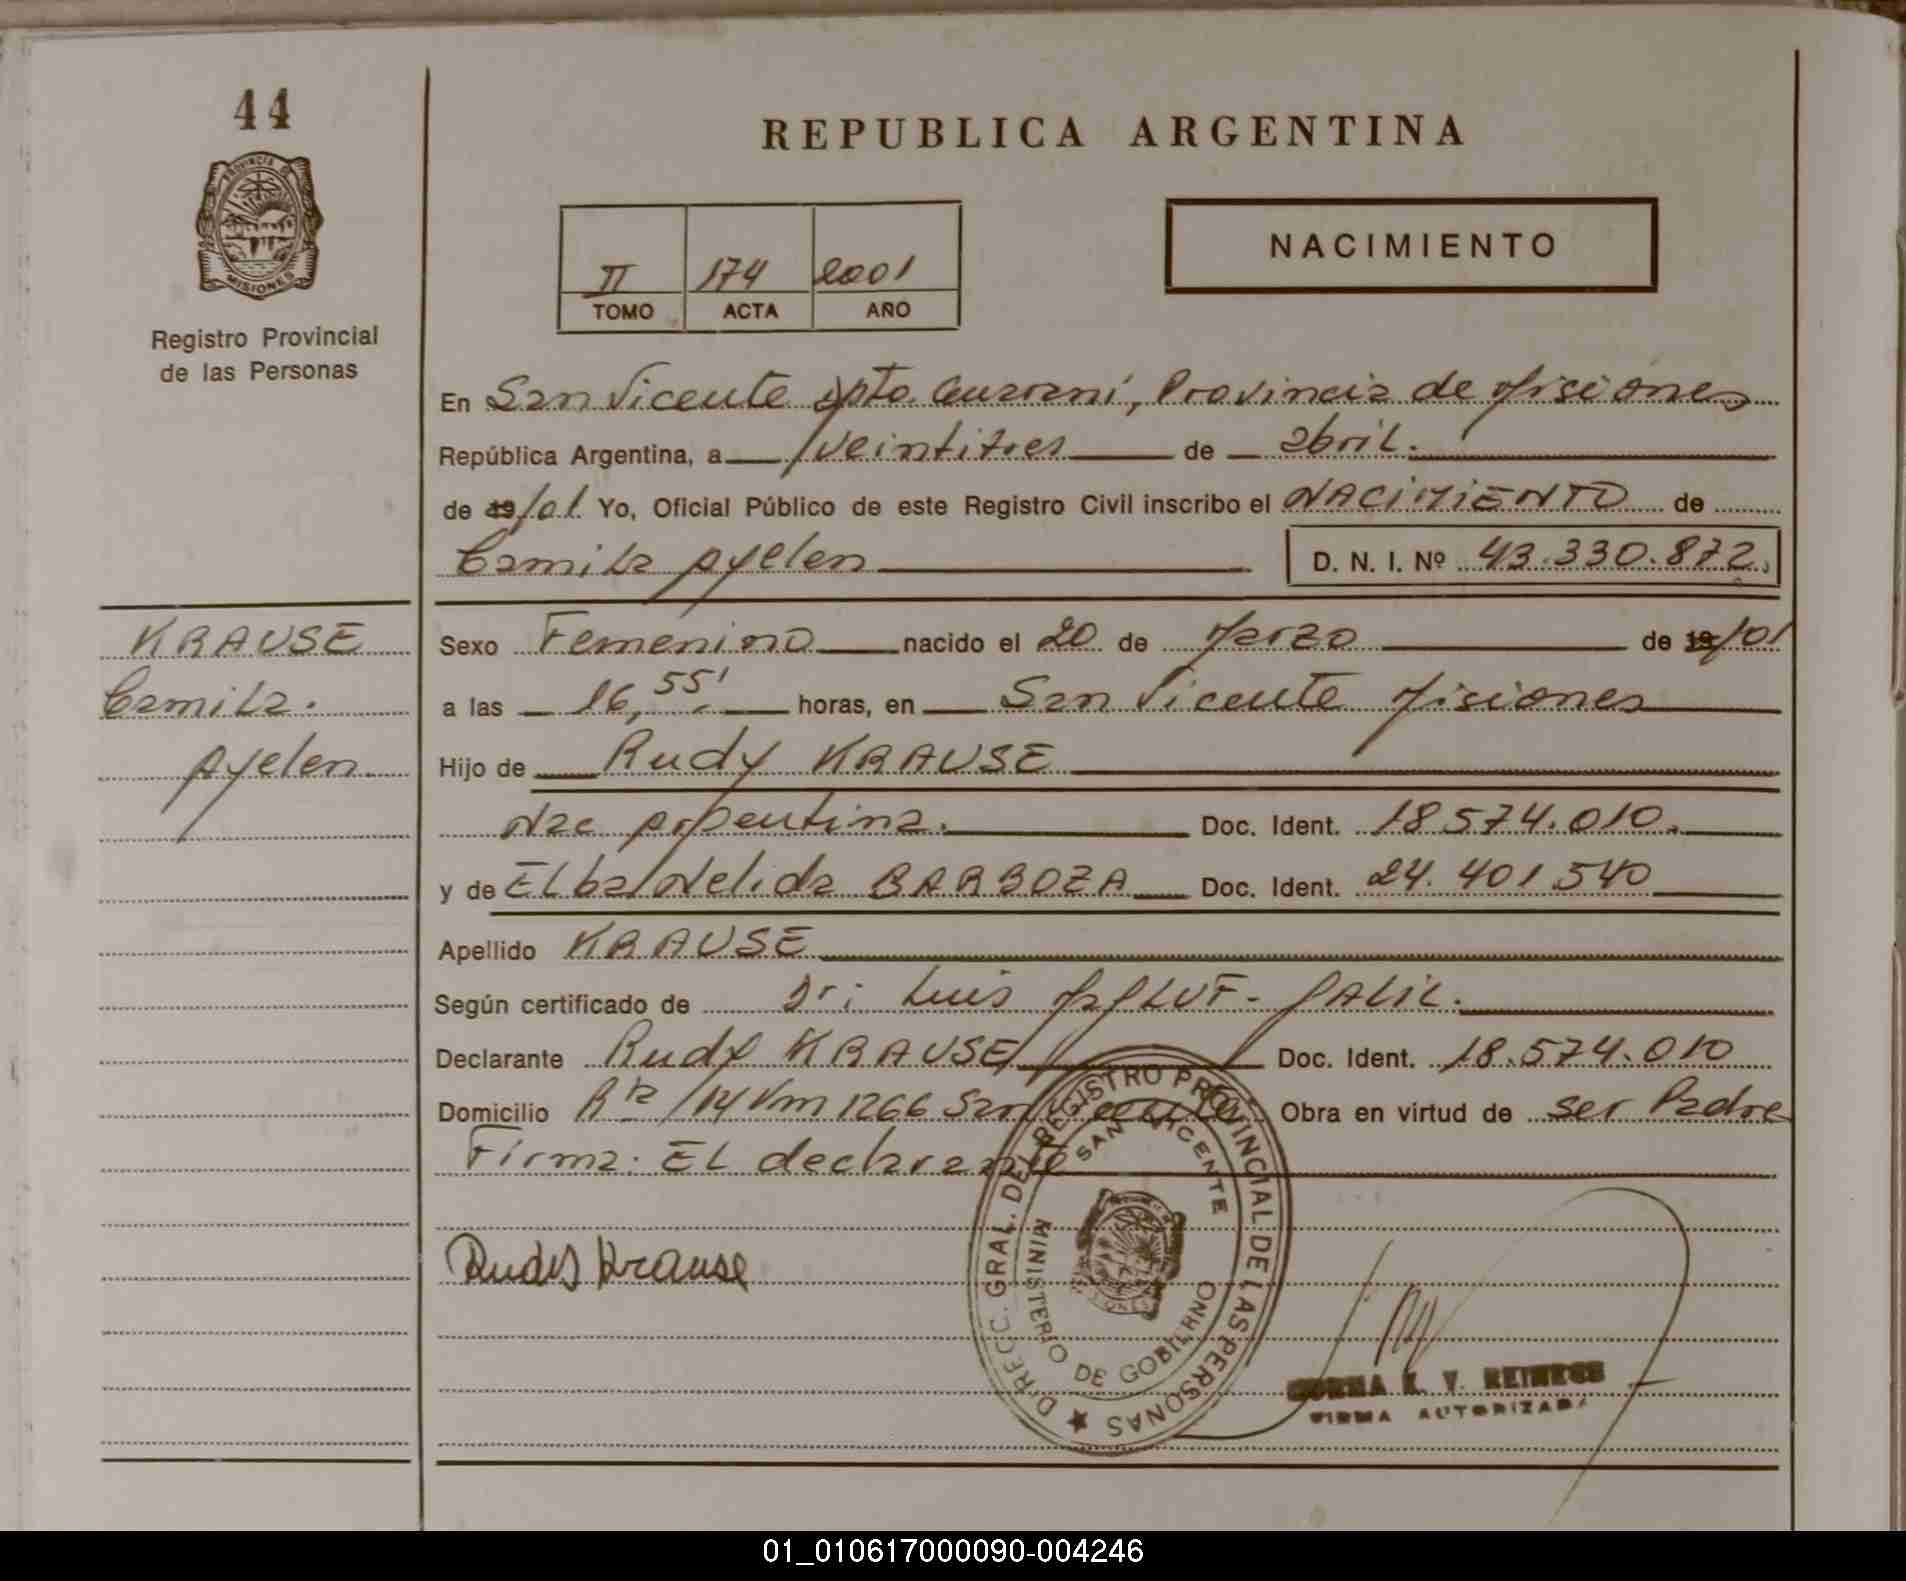 44
PROVINCIA DE
MISIONES
Registro Provincial
de las Personas
REPUBLICA ARGENTINA
NACIMIENTO
II 174 2001
TOMO ACTA AÑO
En San Vicente Dpto. Guaraní, Provincia de Misiones
República Argentina, a veintitres de abril.
de 19/01 Yo, Oficial Público de este Registro Civil inscribo el NACIMIENTO de
Camila Ayelen D. N. I. Nº 43.330.872.
KRAUSE
Camila.
Ayelen
Sexo Femenino nacido el 20 de Marzo de 19/01
a las 16,55' horas, en San Vicente Misiones
Hijo de Rudy KRAUSE
Nac Argentina. Doc. Ident. 18574.010.
y de Elba Nelida BARBOZA Doc. Ident. 24.401540
Apellido KRAUSE
Según certificado de Dr: Luis
Declarante Rudy KRAUSE Doc. Ident. 18.574.010
Domicilio Rta 14 Km 1266 San Vicente. Obra en virtud de ser Padre
Firma: EL declarante
Rudy Krause
DIRECC. GRAL. DEL REGISTRO PROVINCIAL DE LAS PERSONAS
SAN VICENTE
MINISTERIO DE GOBIERNO
MISIONES
FIRMA AUTORIZADA
01_010617000090-004246